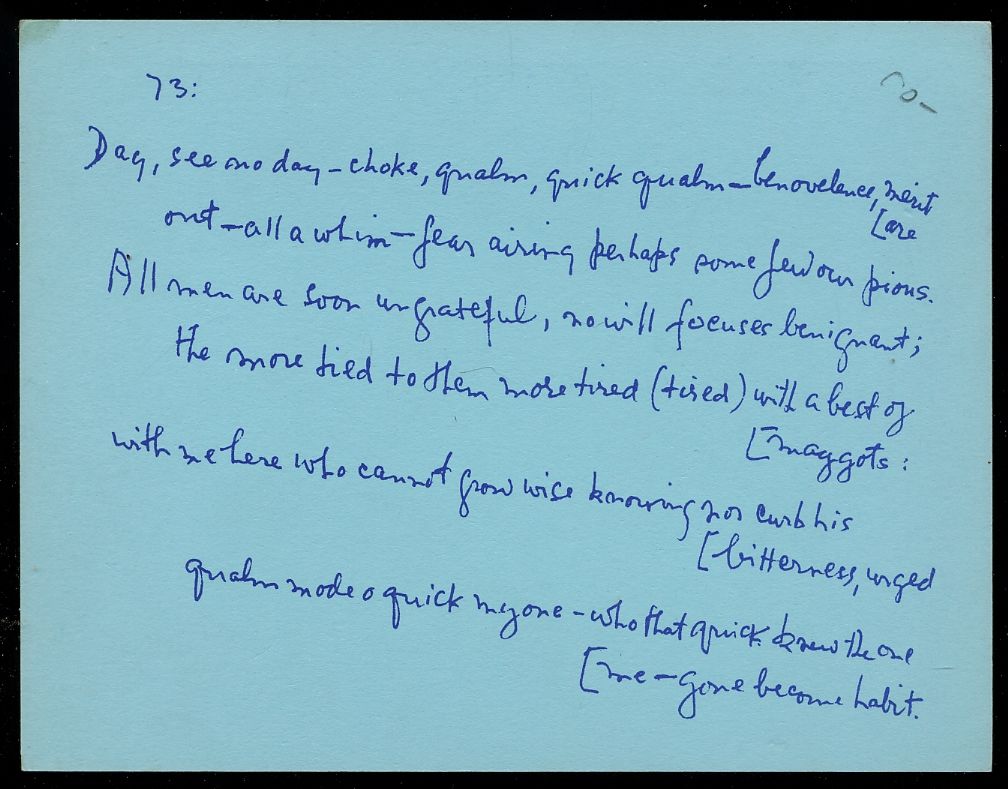 73:
Day, see no day – choke, qualm, quick qualm – benovelence, merit
[are
out – all a whim – fear airing perhaps some few our pious.
All men are soon ungrateful, no will focuses benignant;
the more tied to them more tired (tired) with a best of
[maggots:
with me here who cannot grow wise knowing nor curb his
[bitterness, urged
qualm mode o quick my one – who that quick knew the one
[me – gone become habit.